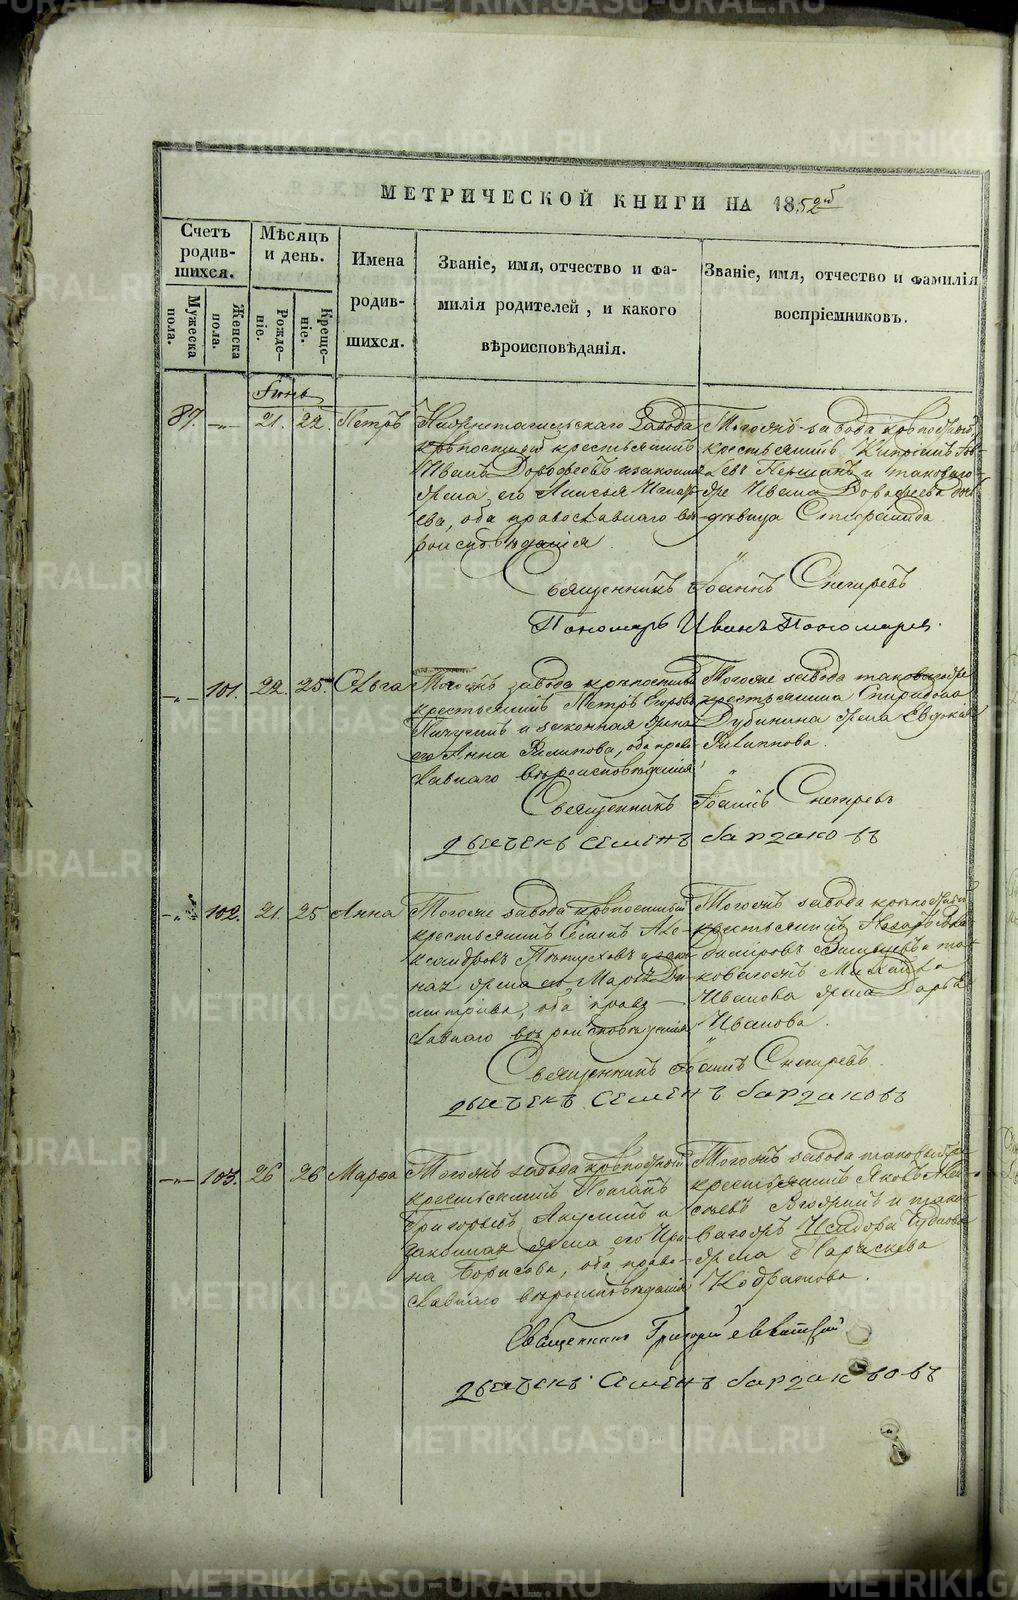 МЕТРИЧЕСКОЙ КНИГИ НА 1852й
Счетъ родив-шихся.
Мужеска пола.
Женска пола.
Мѣсяцъ и день.
Рожде-ніе.
Креще-ніе.
Имена родив-шихся.
Званіе, имя, отчество и фа-
милія родителей, и какого
вѣроисповѣданія.
Званіе, имя, отчество и фамилія
воспріемниковъ.
Іюнь
87. 21. 22. Петръ
Нижнетагильскаго Завода
крѣпостный крестьянинъ
Иванъ Дорофеевъ и законная
жена его Анисья
ева, оба православнаго вѣ-
роисповѣданія
Тогожъ завода крѣпостный
крестьянинъ
и таковаго
же Ивана Дорофеева дочь
девица
Священникъ Іоаннъ Снегиревъ
Пономарь Иванъ Пономарев.
101. 22. 25. Ольга
Тогожъ завода крѣпостный
крестьянинъ Петръ Егоровъ
и законная жена
его Анна Филипова, оба право-
славнаго вѣроисповѣданія
Тогоже завода таковагоже
крестьянина Спиридона
Дубинина жена Евдокия
Филиппова.
Священникъ Іоаннъ Снегиревъ
дьячекъ семенъ барзаковъ
102. 21. 25 Анна
Тогоже завода крѣпостный
крестьянинъ Семенъ Але-
ксандровъ Пѣтуховъ и закон-
ная жена его Марѳа Ди-
митріева, оба право-
славнаго вѣроисповѣданія
Тогожъ завода крѣпостный
крестьянинъ Назаръ Вла-
димировъ и та-
ковагожъ Михайла
Иванова жена Дарья
Иванова.
Священникъ Іоаннъ Снегиревъ.
дьячекъ семенъ барзаковъ
103. 26 26 Марѳа
Тогожъ завода крѣпостный
крестьянинъ
Григорьевъ Акулинъ и
законная жена его Ири-
на Борисова, оба право-
славнаго вѣроисповѣданія
Тогожъ завода таковыйже
крестьянинъ Яковъ Алек-
сѣевъ и тако-
вагожъ
жена Параскева
Кодратова.
Священникъ Григорій
дьячекъ семенъ барзаковъ
METRIKI.GASO-URAL.RU